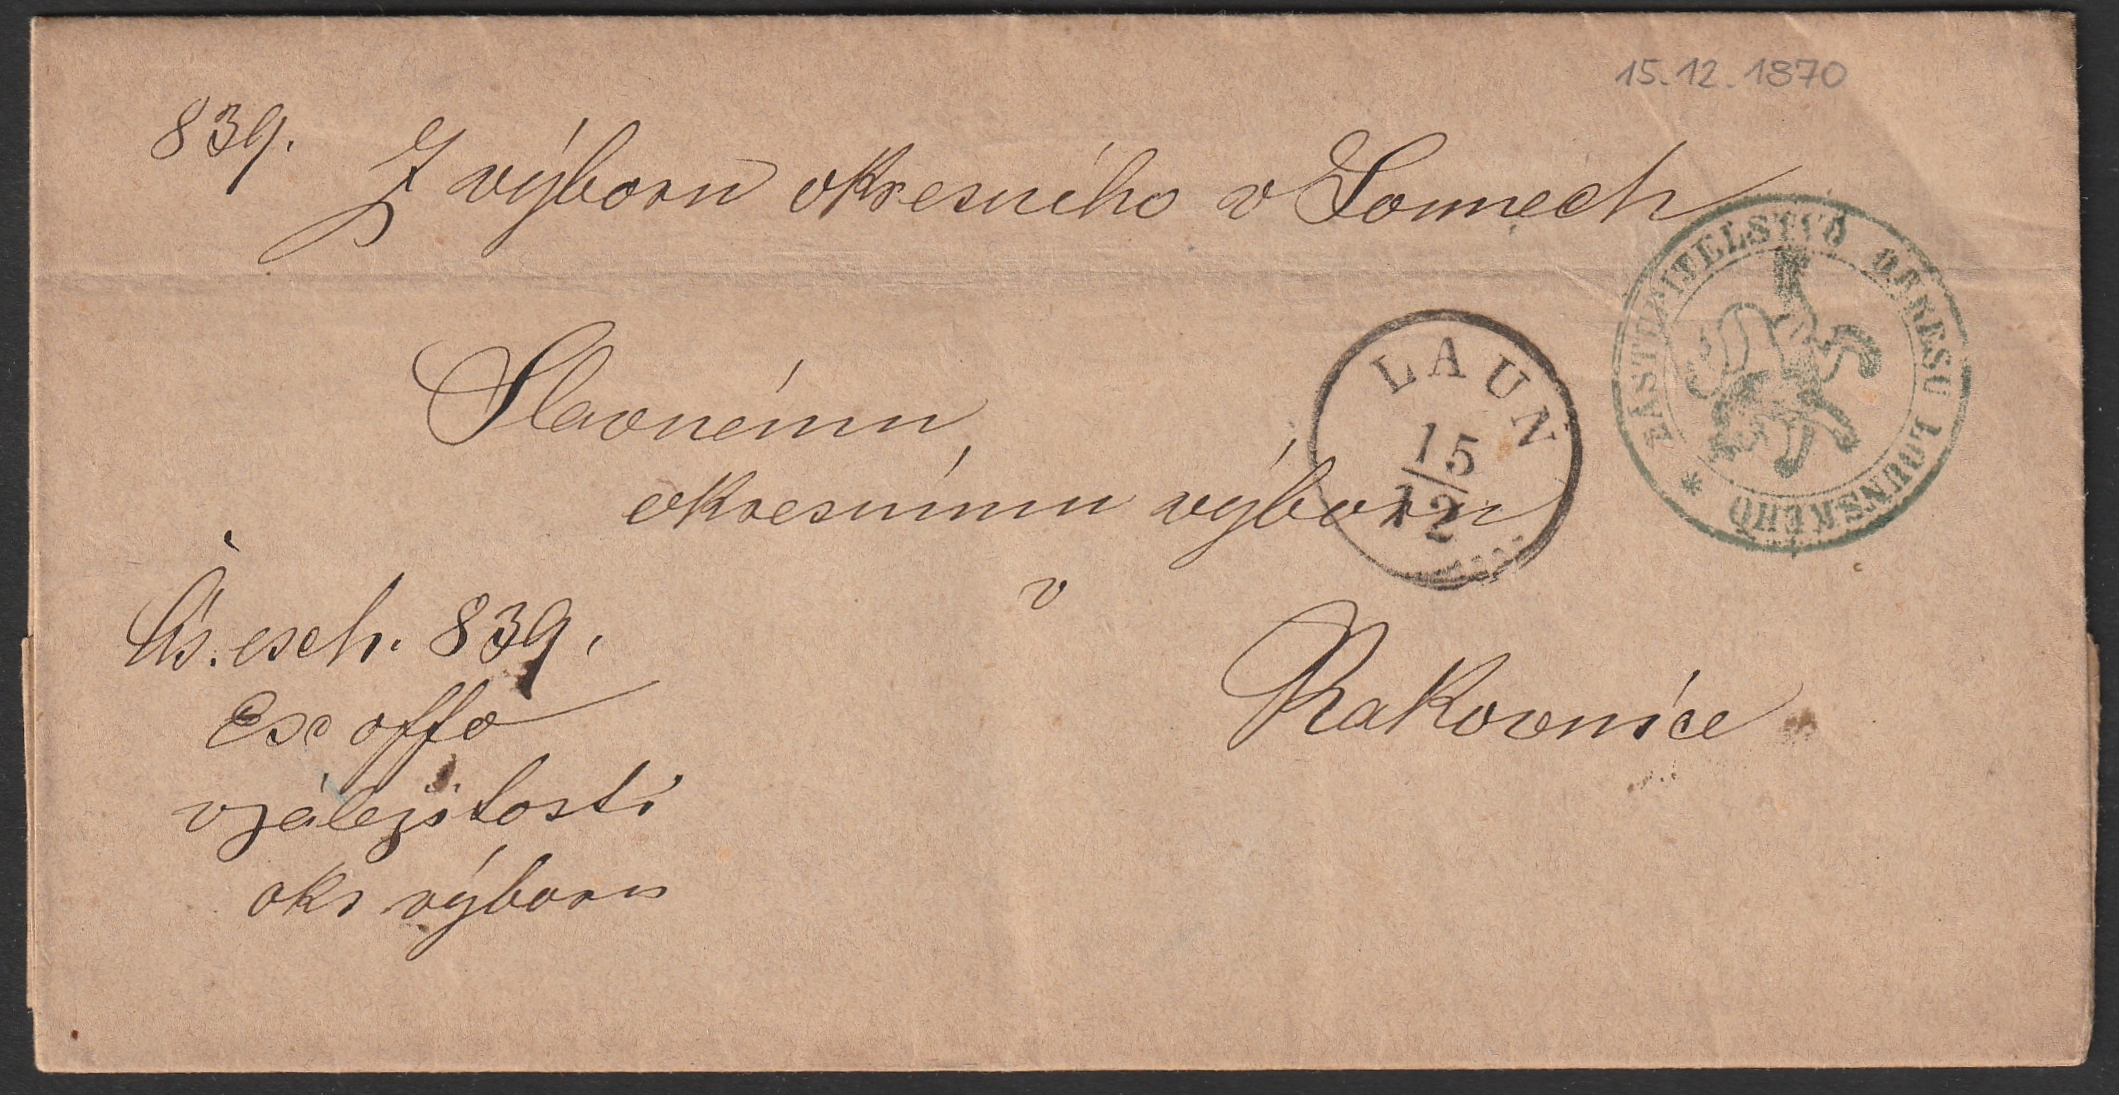 15.12.1870
839.
Z výboru okresního v Lounech
ZASTUPITELSTVO OKRESU LOUNSKÉHO *
LAUN
15
12
Slavnému
okresnímu výboru
v
Rakovníce
Čís. exh. 839.
Ex offo
v záležitosti
okr výboru